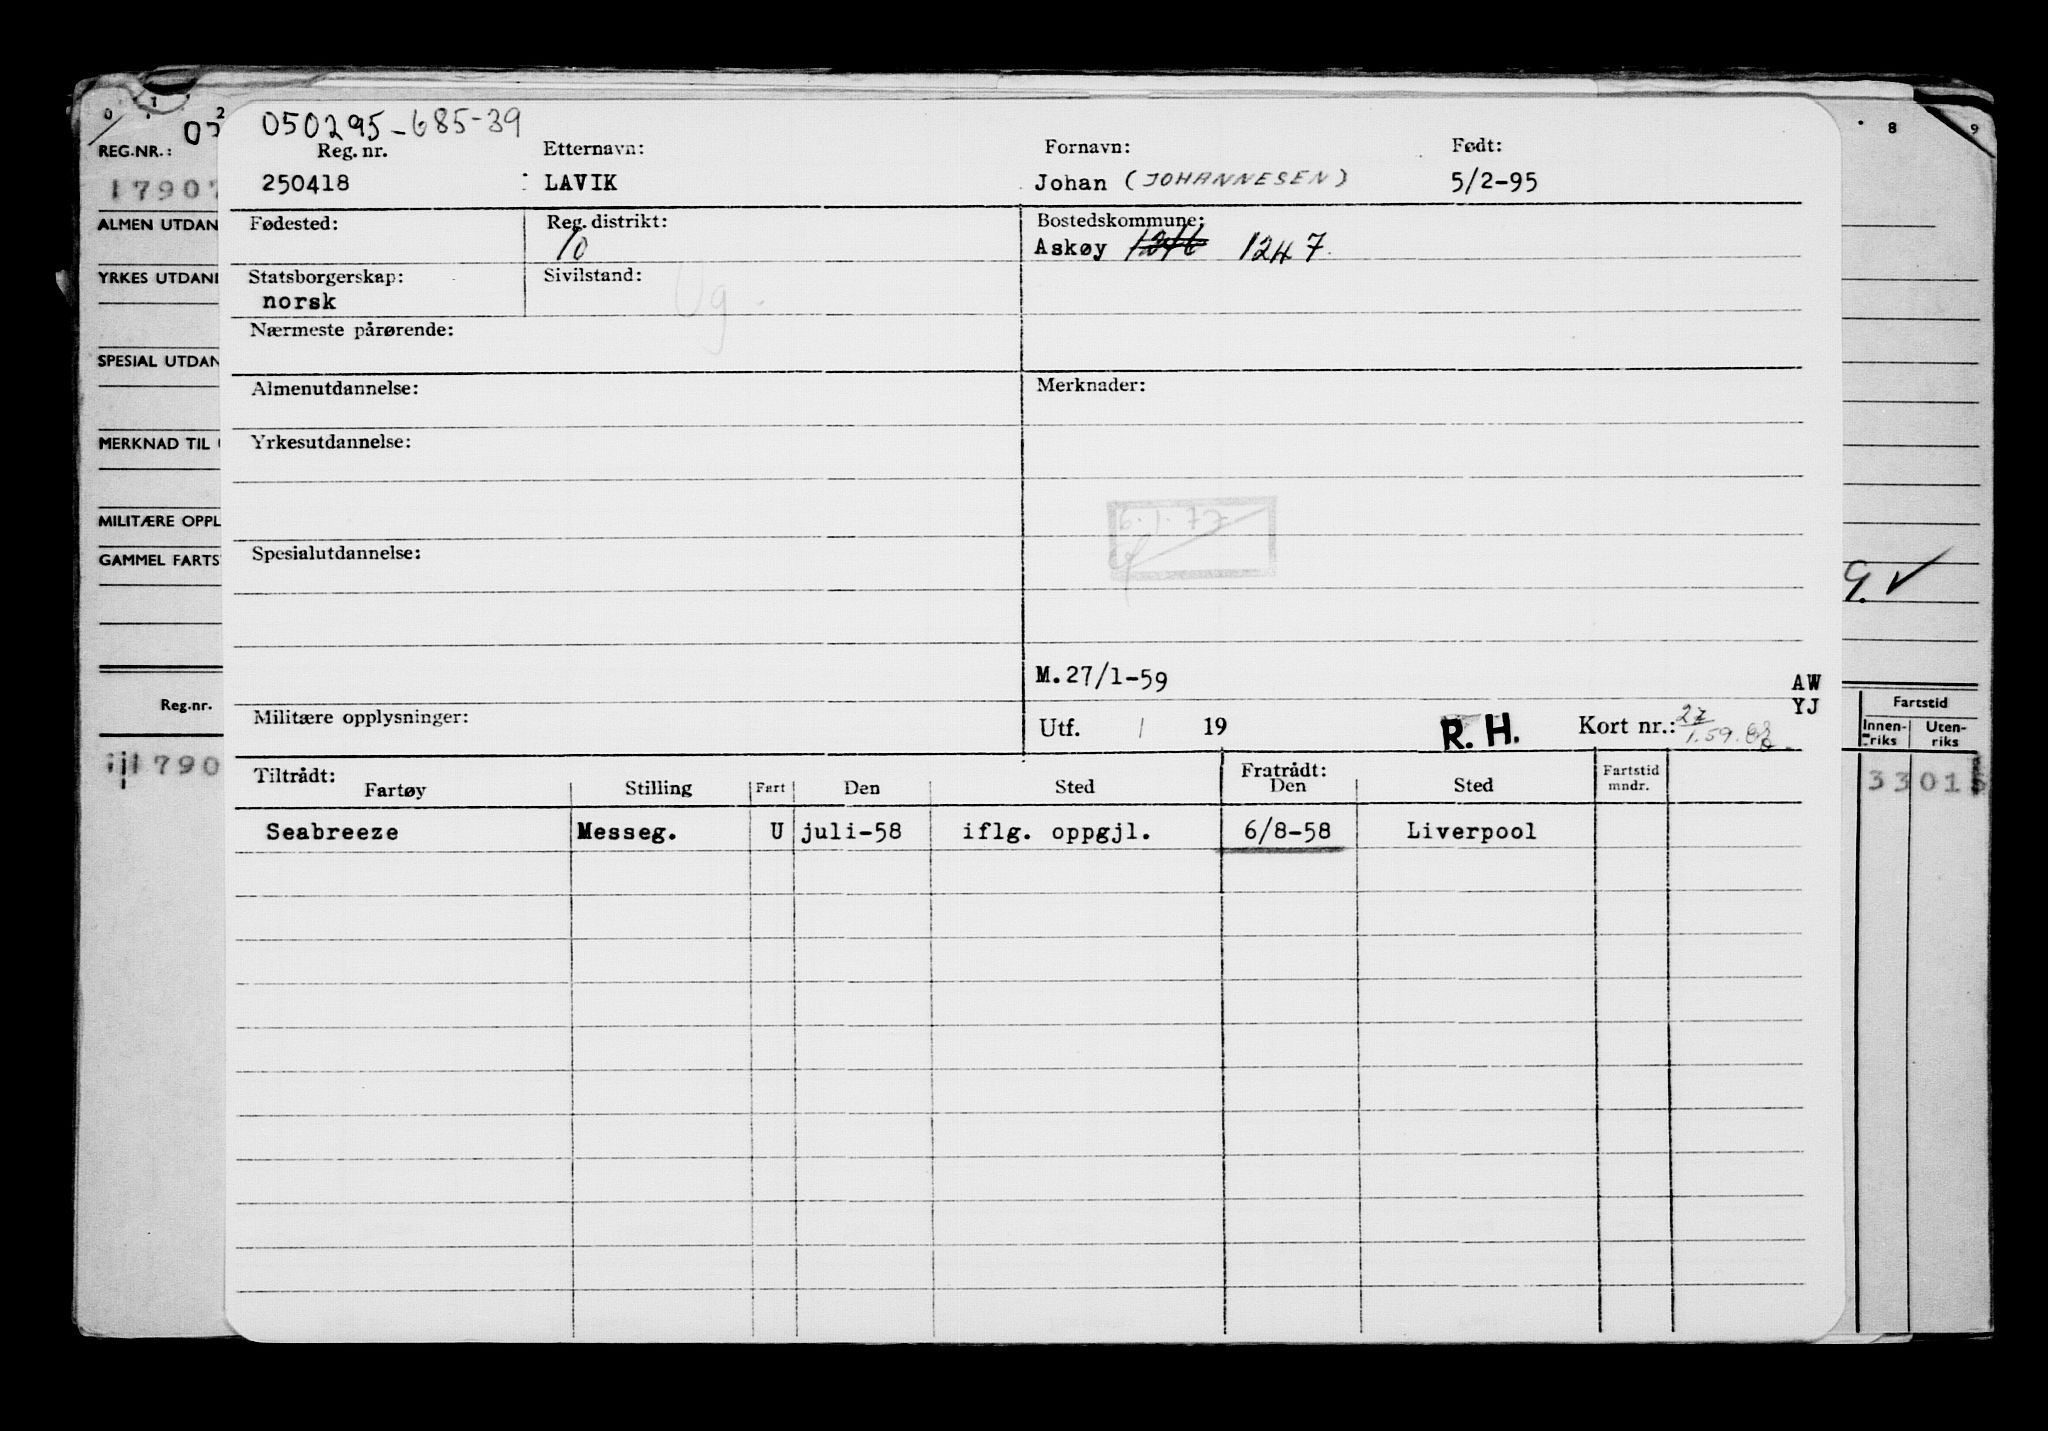 0 1 2 8 9
050295-685-39
REG.NR.: Reg. nr. Etternavn: Fornavn: Født:
17907 250418 LAVIK Johan (JOHANNESEN) 5/2-95
ALMEN UTDAN Fødested: Reg. distrikt: Bostedskommune:
10 Askøy 1246 1247
YRKES UTDAN Statsborgerskap: Sivilstand:
norsk Ug.
Nærmeste pårørende:
SPESIAL UTDAN
Almenutdannelse: Merknader:
MERKNAD TIL Yrkesutdannelse:
MILITÆRE OPPL 6.1.77
GAMMEL FARTS Spesialutdannelse:
9. ✓
M.27/1-59 AW
Reg.nr. YJ Fartstid
Militære opplysninger: Utf. / 19 R. H. Kort nr.: 27/1.59. Innen-riks Uten-riks
790 3301
Tiltrådt: Fratrådt: Fartstid
Fartøy Stilling Fart Den Sted Den Sted mndr.
Seabreeze Messeg. U juli-58 iflg. oppgjl. 6/8-58 Liverpool